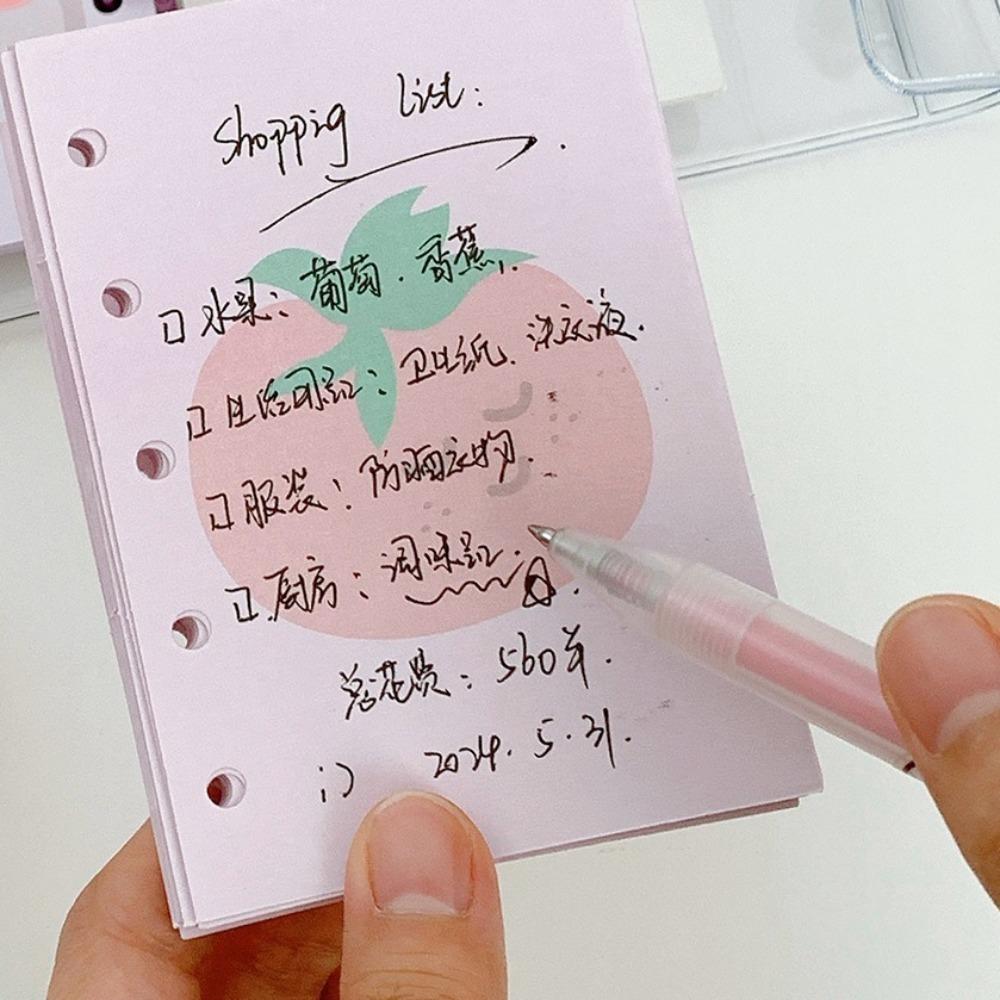 Shoppig List:
水果：葡萄.香蕉.
生活用品：卫生纸.洗衣液.
服装：防晒衣物.
厨房：调味品.
总花费：560羊.
:) 2024.5.31.